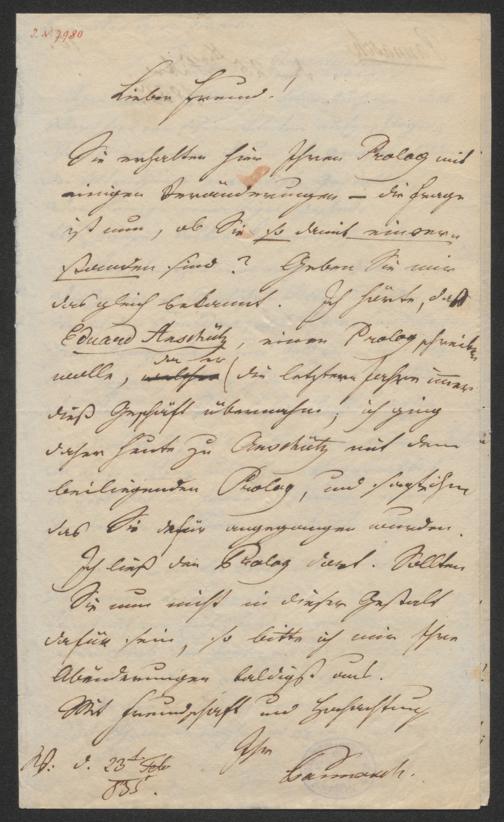 J. N. 7980
Lieber Freund!
Sie erhalten hier Ihren Prolog mit
einigen Veränderungen – die Frage
ist nun, ob Sie so damit einver-
standen sind? Geben Sie mir
das gleich bekannt. Ich hörte, daß
Eduard Anschütz, einen Prolog schreiben
wolle, welcher da er (die letztern Jahre immer
dieß Geschäft übernahm; ich ging
daher heute zu Anschütz mit dem
beiliegenden Prolog, und sagte ihm
das Sie dafür angegangen wurden.
Ich ließ den Prolog dort. Sollten
Sie nun nicht in dieser Gestalt
dafür sein, so bitte ich mir Ihre
Abänderungen baldigst aus.
Mit Freundschaft und Hochachtung
Ihr
d. 23t Feb
835.